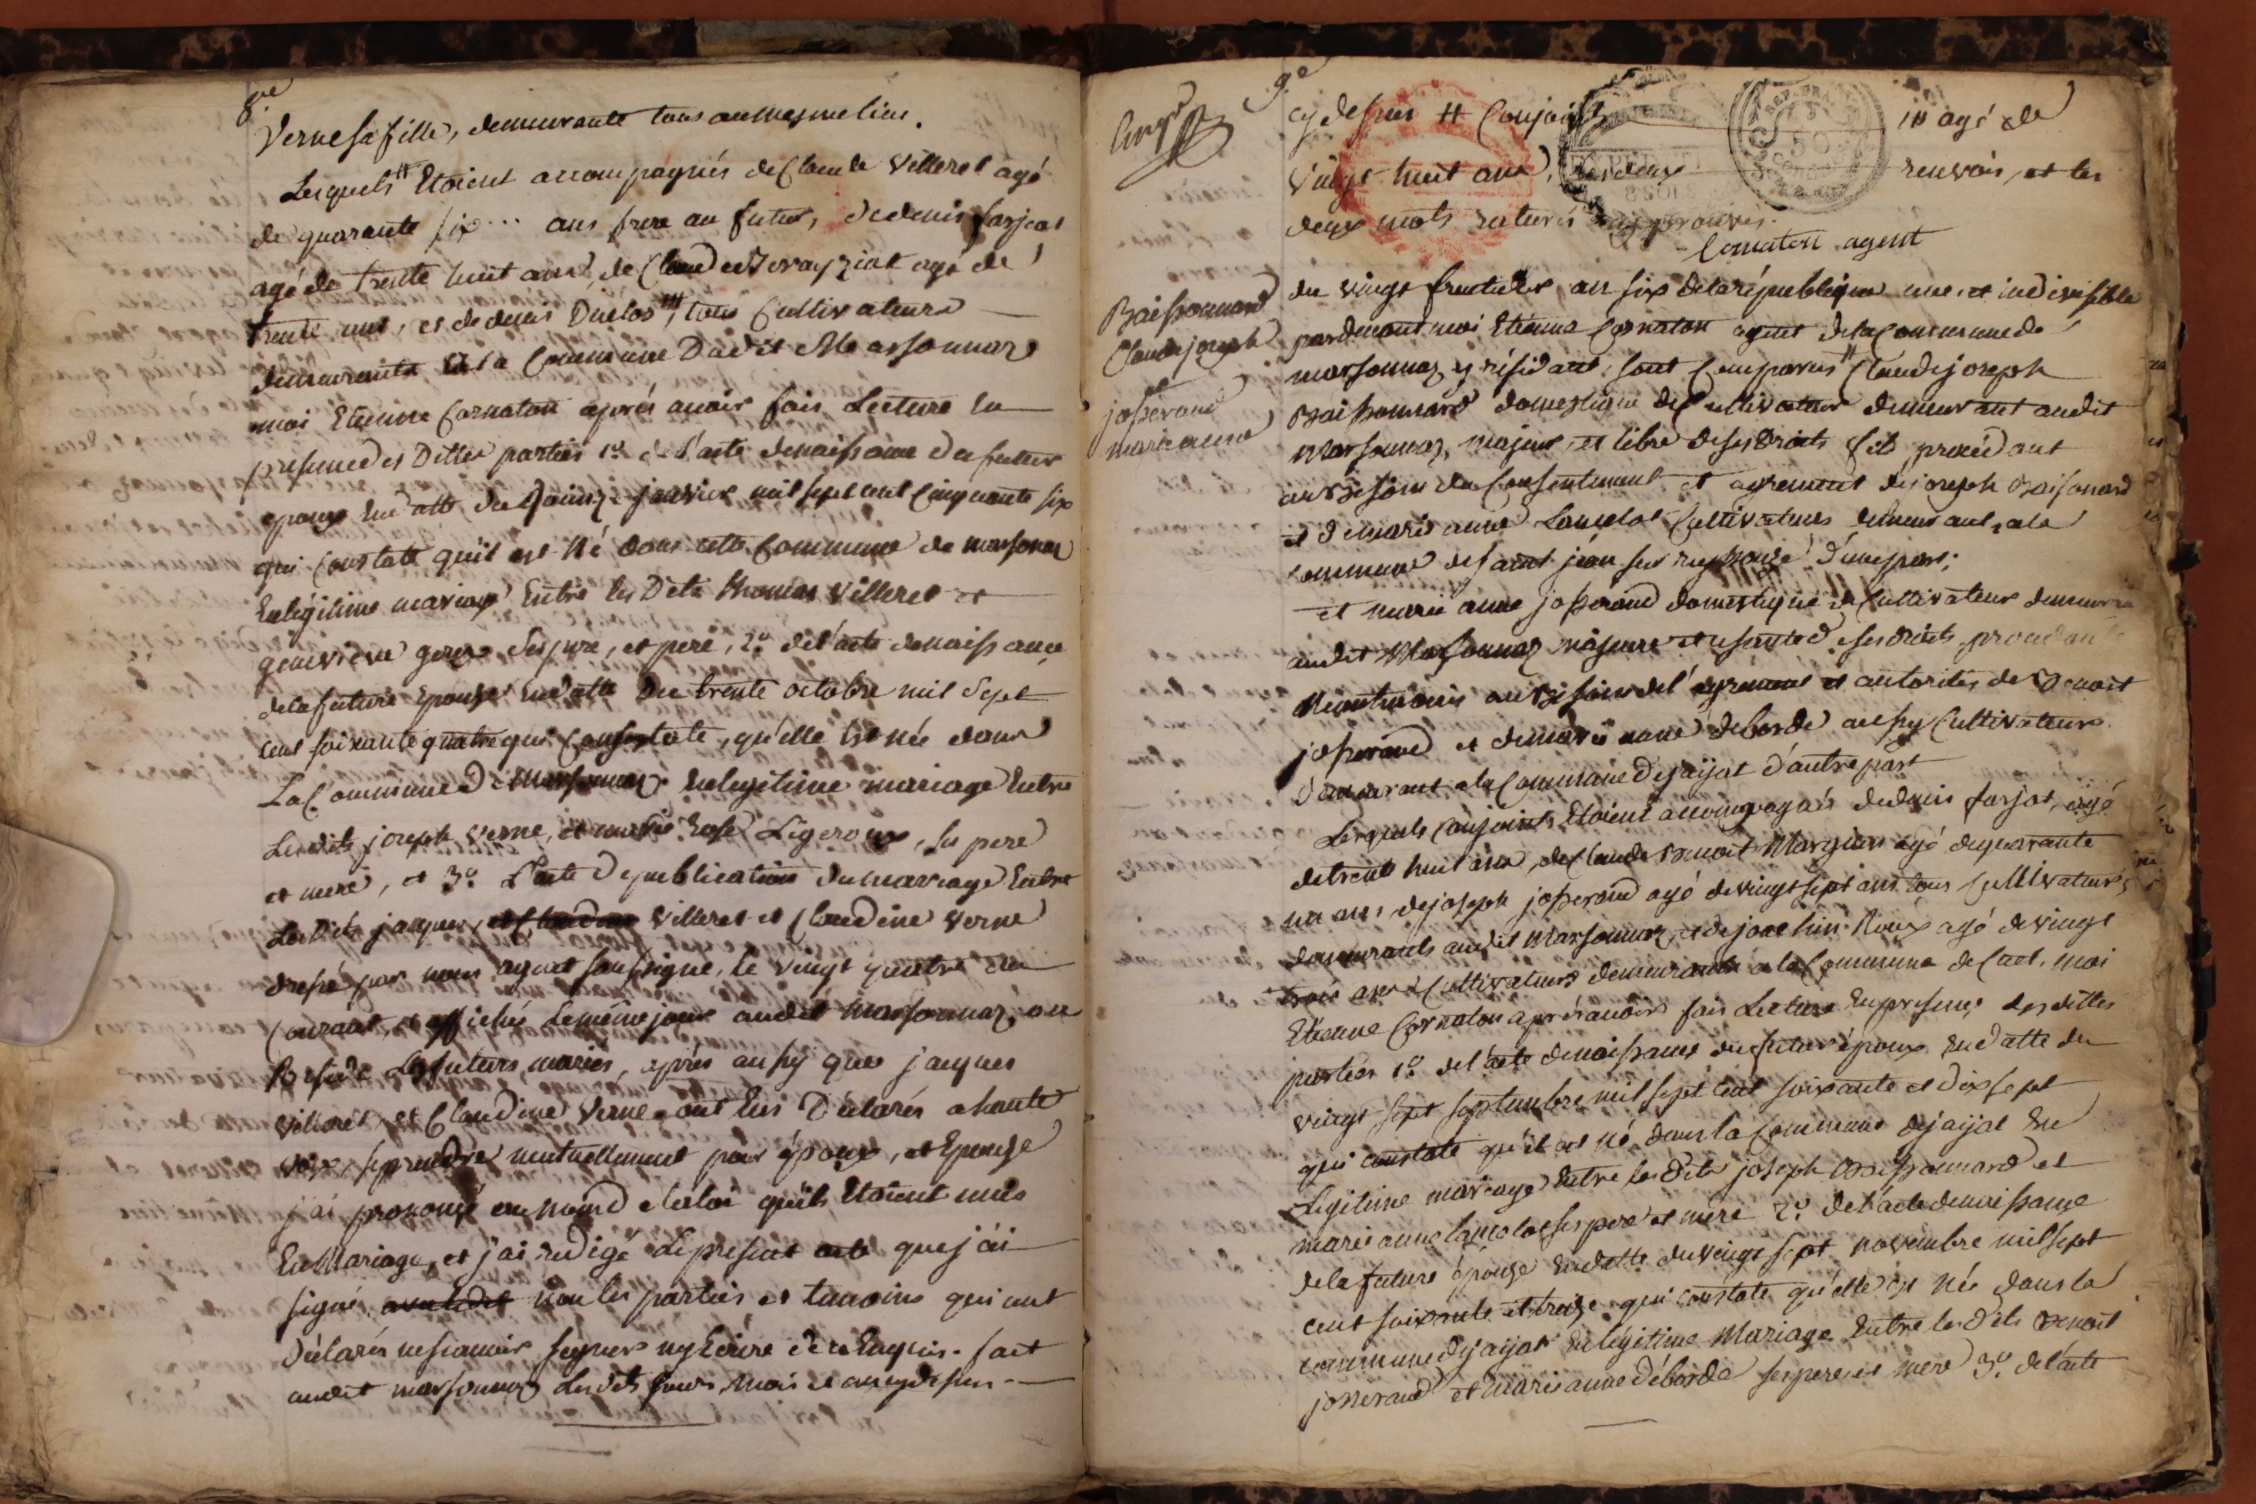 8.e
Verne sa fille, demeurante tous au mesme lieu.
Lesquels # Etoient accompagnés de Claude Villeret agé
de quarante six ... ans frere au futur, de denis farjat
agé de trente huit ans, de Claude
trente ans, et de denis Duclos, tous Cultivateurs
demeurants a la Commune Dudit Marsonnaz
moi Etienne Cornaton aprés avoir fais Lecture en
presence des Dittes parties 1.o de l'acte de naissance du futur
epoux en datte du janvier mil sept cent Cinquante six
qui constate qu'il est Né dans cette Commune de marsonnaz
En légitime mariage Entre les Dits thomas Villeret et
genevieve ses pere, et pere, 2.o de l'acte de naissance
de la future Epouse En datte du trente octobre mil Sept
cent soixante quatre qui Constate, qu'elle est née dans
La Commune de marsonnaz En legitime mariage Entre
Les dits joseph Verne, et marie Ligeroux, ses pere
et mere, et 3.o L'acte de publication du mariage Entre
Les Dits jacques Villeret et Claudine Verne
dressé par nous agent soussigné, le vingt quatre du
Courant, et affichés le même jour audit Marsonnaz, ou
Reside les futurs mariés, aprés aussy que jacques
Villeret, et Claudine Verne ont Eus Déclarés a haute
voix, se prendre mutuellement pour époux, et Epouse
j'ai prononcé au nom de la loi qu'ils Etoient unis
En Mariage, et j'ai redigé Le present acte que j'ai
signé non les parties et temoins qui ont
Déclarés ne scavoir signer ny Ecrire de ce Enquis. fait
audit marsonnaz Les dits jours, mois et an cy dessus
9.e
cy dessus # Conjoints agé de
vingt huit ans, renvois, et les
deux mots raturés approuvés.
Cornaton agent
Boissonnard
Claude joseph
et
josserand
marie anne
du vingt fructidor, an six de la république une, et indivisible
pardevant moi Etienne Cornaton agent de la Commune de
marsonnaz y résidant, sont Comparus # Claude joseph
Boissonnard domestique de Cultivateur demeurant audit
Marsonnaz, majeur, et libre de ses Droits fils procédant
au besoin du Consentement et agrement de joseph Boissonnard
et de marie anne Lancelot Cultivateurs demeurants, a la
commune de saint jean sur reyssouze d'une part;
et marie anne josserand domestique de Cultivateur demeurante
audit Marsonnaz majeure et usante de ses droits, procedante
Neantmoins au besoin de l'agrément et autorités de Benoit
josserand et de marie anne deborde aussy Cultivateurs
demeurant a la Commune de jayat d'autre part
Lesquels conjoints Etoient accompagnés de denis farjat, agé
de trente huit ans, de Claude Benoit Marguin agé de quarante
un ans, de joseph josserand agé de vingt sept ans tous Cultivateurs
demeurants audit Marsonnaz, et de joachim Roux agé de vingt
trois ans Cultivateurs demeurants a la Commune de Cuet, moi
Etienne Cornaton aprés avoir fais Lecture En presence des dittes
parties 1.o de l'acte de naissance du futur époux En datte du
vingt sept septembre mil sept cent soixante et dix sept
qui constate qu'il est Né dans la Commune de jayat En
Legitime mariage Entre les Dits joseph Boissonnard et
marie anne Lancelot ses pere et mere 2.o de l'acte de naissance
de la future épouse En datte du vingt sept novembre mil sept
cent soixante et treize qui constate qu'elle est Née dans la
commune de jayat En legitime Mariage Entre les Dits Benoit
josserand et marie anne déborde ses pere, et mere 3.o de l'acte